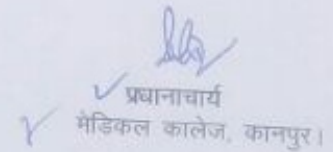 प्रधानाचार्य
मेडिकल कालेज, कानपुर।